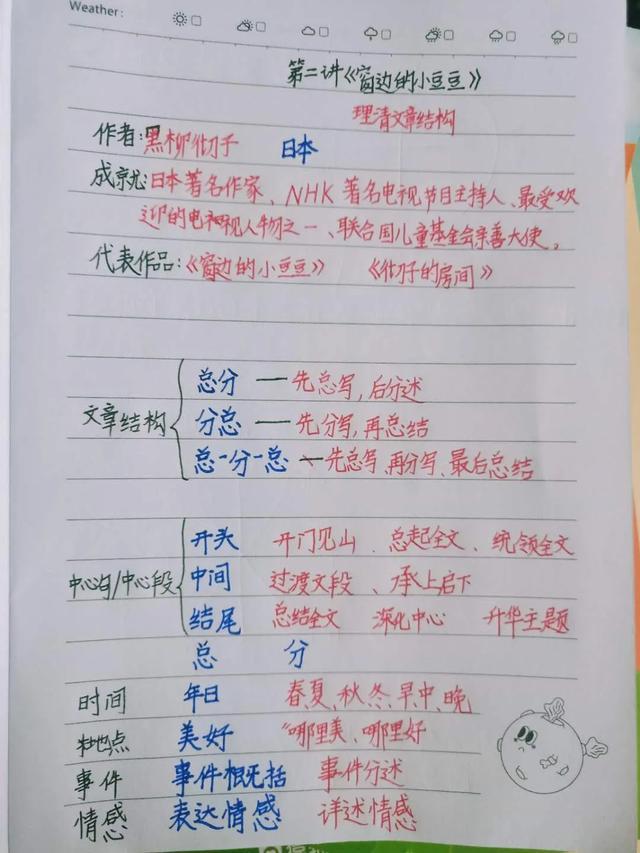 Weather:
第二讲《窗边的小豆豆》
理清文章结构
作者:黑柳彻子 日本
成就:日本著名作家、NHK著名电视节目主持人、最受欢
迎的电视人物之一、联合国儿童基金会亲善大使。
代表作品:《窗边的小豆豆》 《彻子的房间》
总分 — 先总写,后分述
文章结构 分总 — 先分写,再总结
总-分-总 — 先总写、再分写、最后总结
开头 开门见山、总起全文、统领全文
中心句/中心段 中间 过渡文段、承上启下
结尾 总结全文 深化中心 升华主题
总 分
时间 年日 春、夏、秋、冬、早、中、晚
地点 美好 "哪里美、哪里好
事件 事件概括 事件分述
情感 表达情感 详述情感